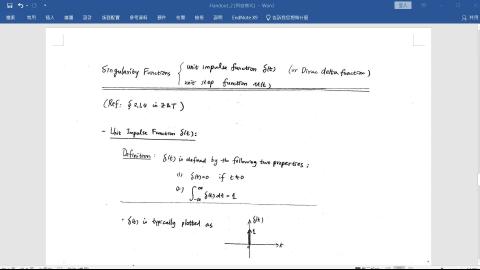 Handout_2 [相容模式] - Word
登入
檔案 常用 插入 繪圖 設計 版面配置 參考資料 郵件 校閱 檢視 說明 EndNote X9 告訴我您想做什麼
共用
Singularity Functions { unit impulse function δ(t) (or Dirac delta function)
unit step function u(t)
(Ref: § 2.1.4 in Z&T)
- Unit Impulse Function δ(t):
Definition: δ(t) is defined by the following two properties:
(1) δ(t)=0 if t≠0
(2) ∫_{-∞}^{∞} δ(t) dt = 1
· δ(t) is typically plotted as
δ(t)
1
t
0